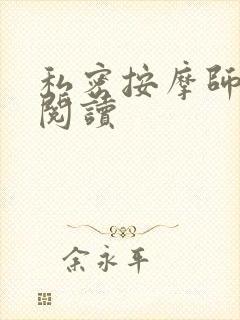 私密按摩師
閱讀
余永平